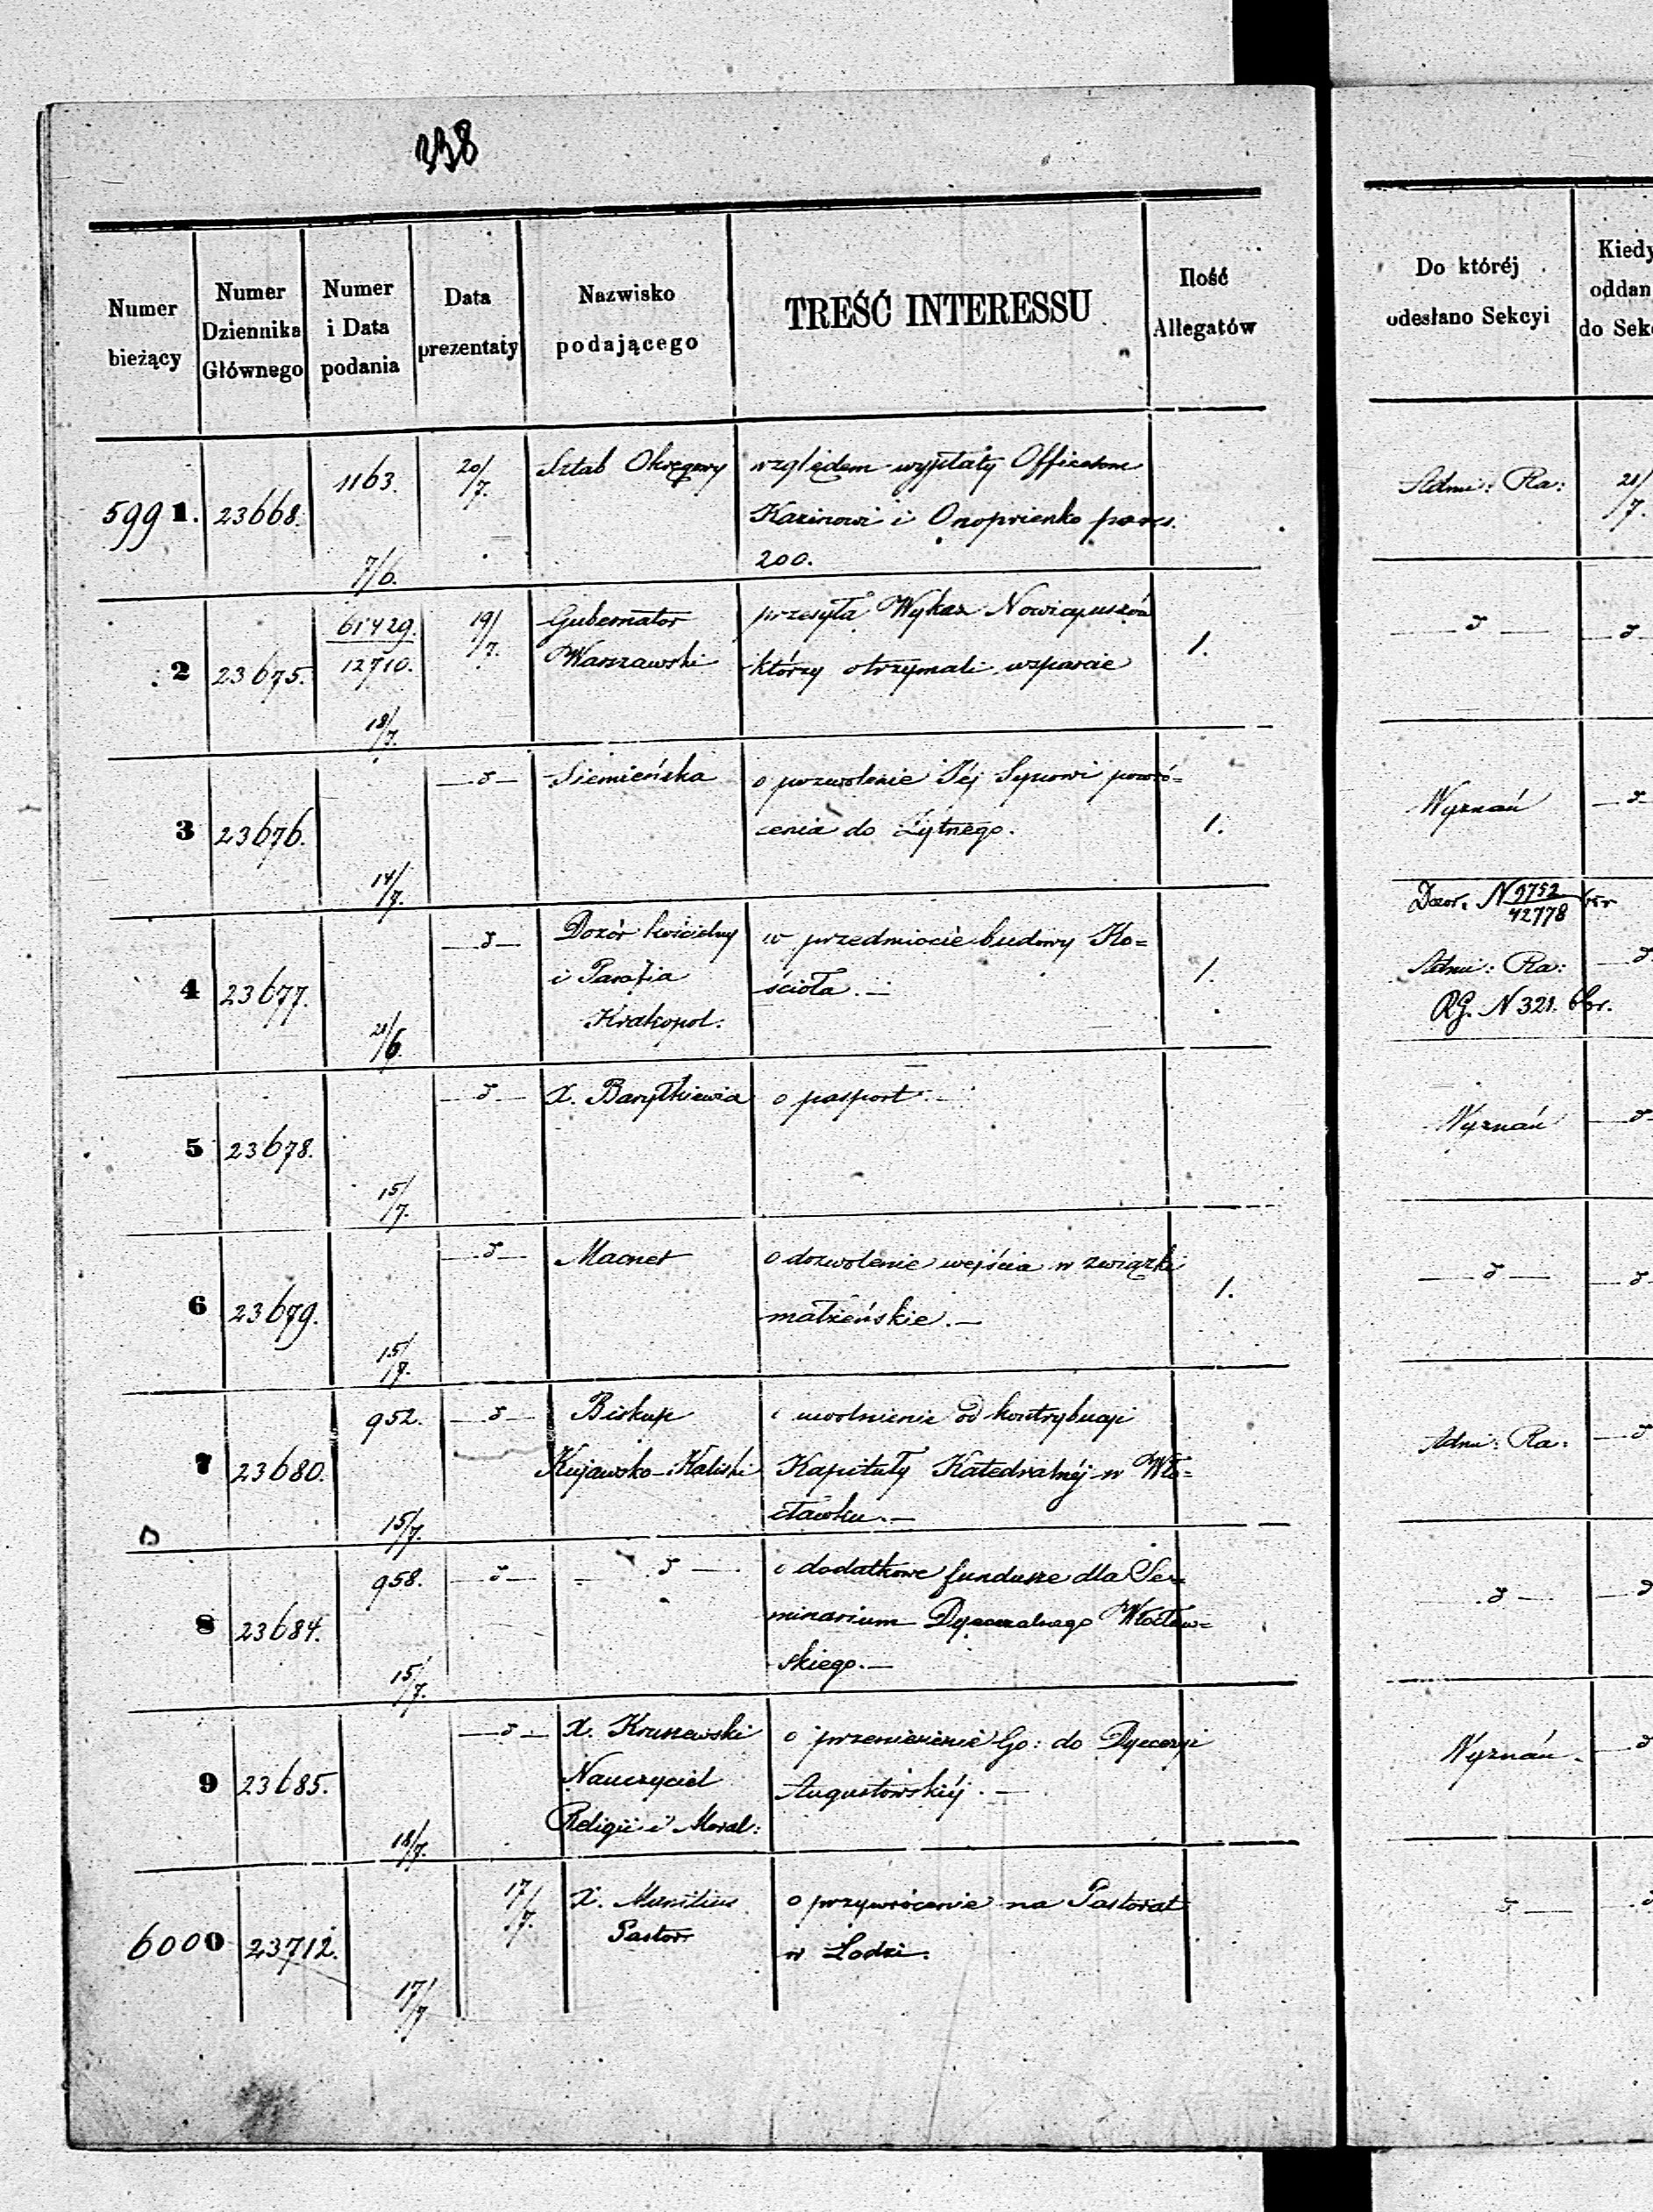 238
Numer bieżący
Numer Dziennika Głównego
Numer i Data podania
Data prezentaty
Nazwisko podającego
TREŚĆ INTERESSU
Ilość Allegatów
Do któréj odesłano Sekcyi
Kiedy oddan do Sek
5991. 23668. 1163. 7/6. 20/7. Sztab Okręgowy względem wypłaty Officerom Adm: Ra: 21/7.
Kazinowi i Onoprienko
200.
2 23675. 61429. 19/7. Gubernator przesyła Wykaz Nowicyuszów 1.
12710. Warszawski którzy otrzymali wsparcie
18/7.
3 23676. Siemieńska o pozwolenie Jéj Synowi powró= Wyznań
cenia do Żytnego. 1.
14/7.
4 23677. Dozór kościelny w przedmiocie budowy Ko= 1. Dozor. N 9752/42778
i Parafia ścioła. Adm: Ra:
Krakopol. RG. N 321.
21/6.
5 23678. X. o pasport. Wyznań
15/7.
6 23679. Macnet o dozwolenie wejścia w związki 1.
małżeńskie.
15/7.
7 23680. 952. Biskup o uwolnienie od kontrybucyi Adm: Ra:
Kujawsko-Kaliski Kapituły Katedralnéj w Wło=
cławku.
15/7.
8 23684. 958. o dodatkowe fundusze dla Se=
minarium Dyecezalnego Włocław=
skiego.
15/7.
9 23685. X. Kruszewski o przeniesienie Go: do Dyecezyi Wyznań.
Nauczyciel Augustowskiéj.
Religii i Moral:
18/7.
6000 23712. 17/7. X. o przywrócenie na Pastorat
Pastor w Łodzi.
17/7